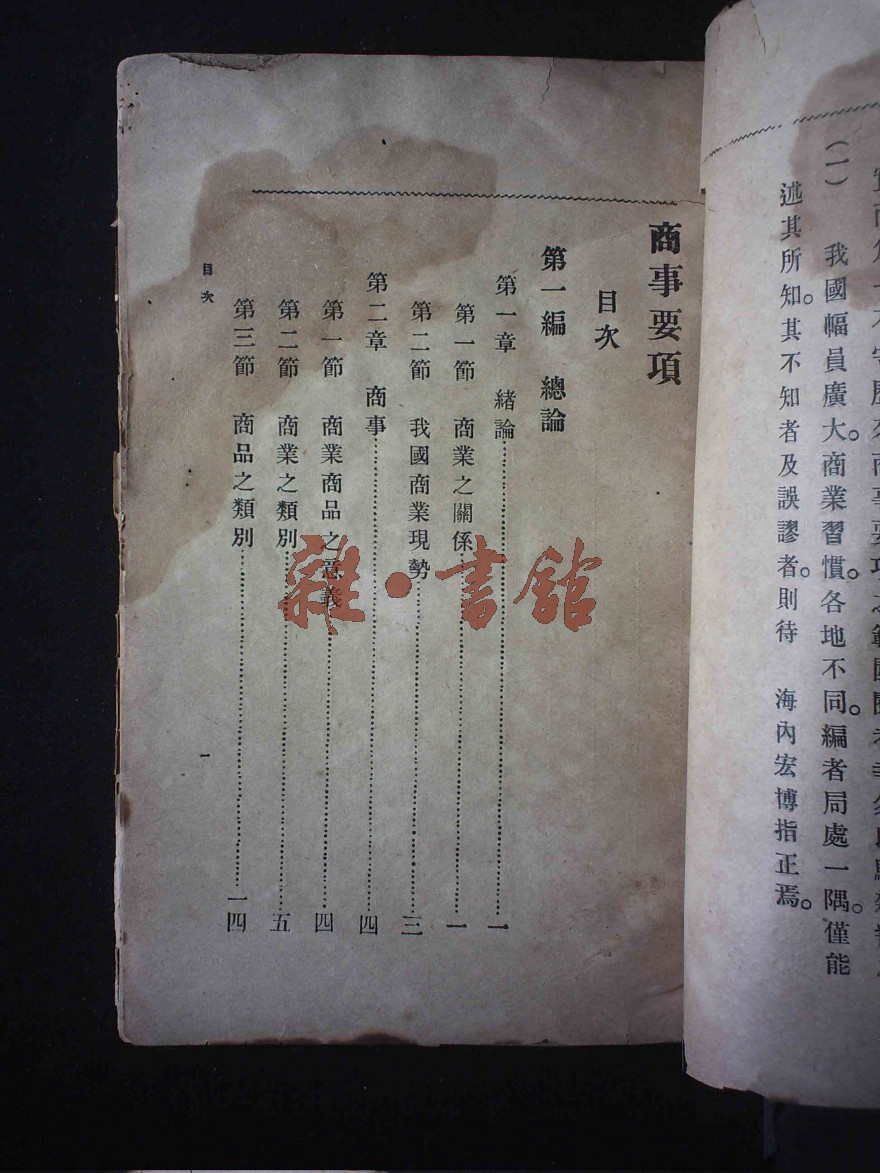 (一) 我國幅員廣大。商業習慣。各地不同。編者局處一隅。僅能
述其所知。其不知者及誤謬者。則待 海內宏博指正焉。
商事要項
目次
第一編 總論
第一章 緒論……一
第一節 商業之關係……一
第二節 我國商業現勢……三
第二章 商事……四
第一節 商業商品之意義……四
第二節 商業之類別……五
第三節 商品之類別……一四
目次
一
雜·書館